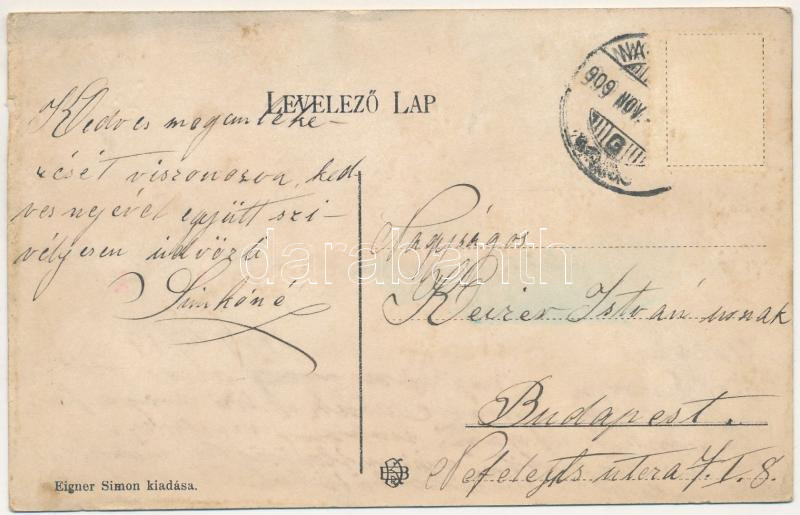 LEVELEZŐ LAP
NA
909 NOV.
G
Kedves megemléke-
zését viszonozva, ked
ves nejével együtt szi-
vélyesen üdvözli
Simkóné
Nagyságos
István úrnak
Budapest.
Nefelejts utcza 7. I. 8.
Eigner Simon kiadása.
darabanth